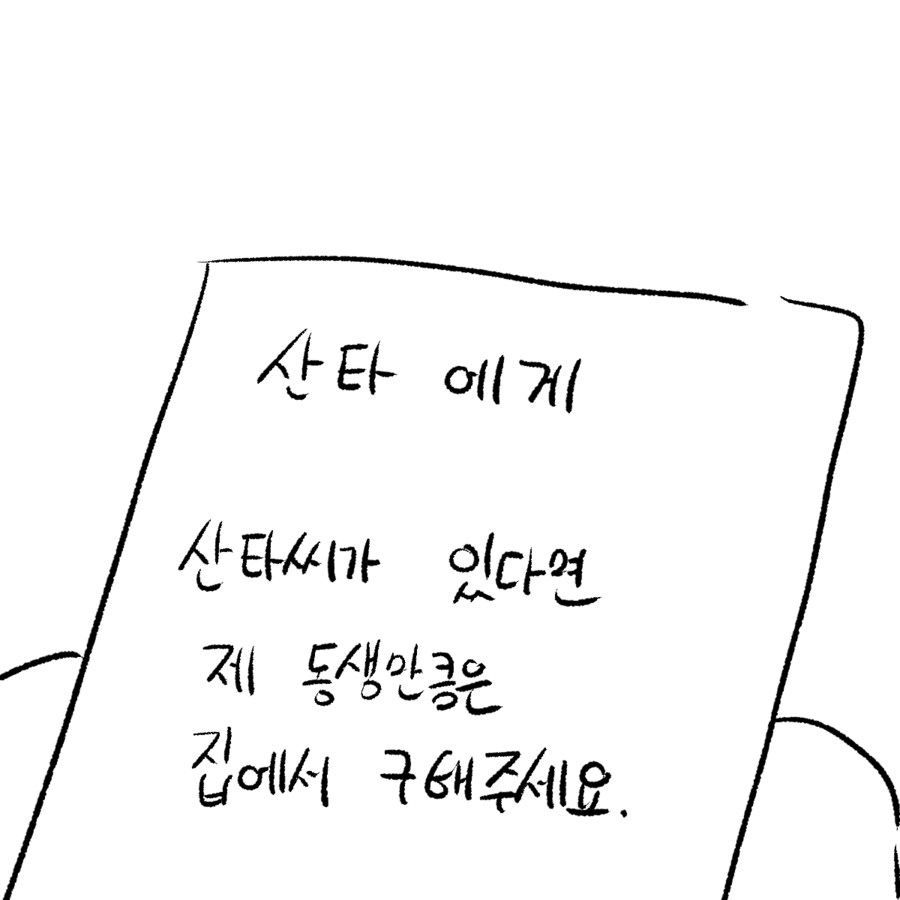 산타 에게
산타씨가 있다면
제 동생만큼은
집에서 구해주세요.